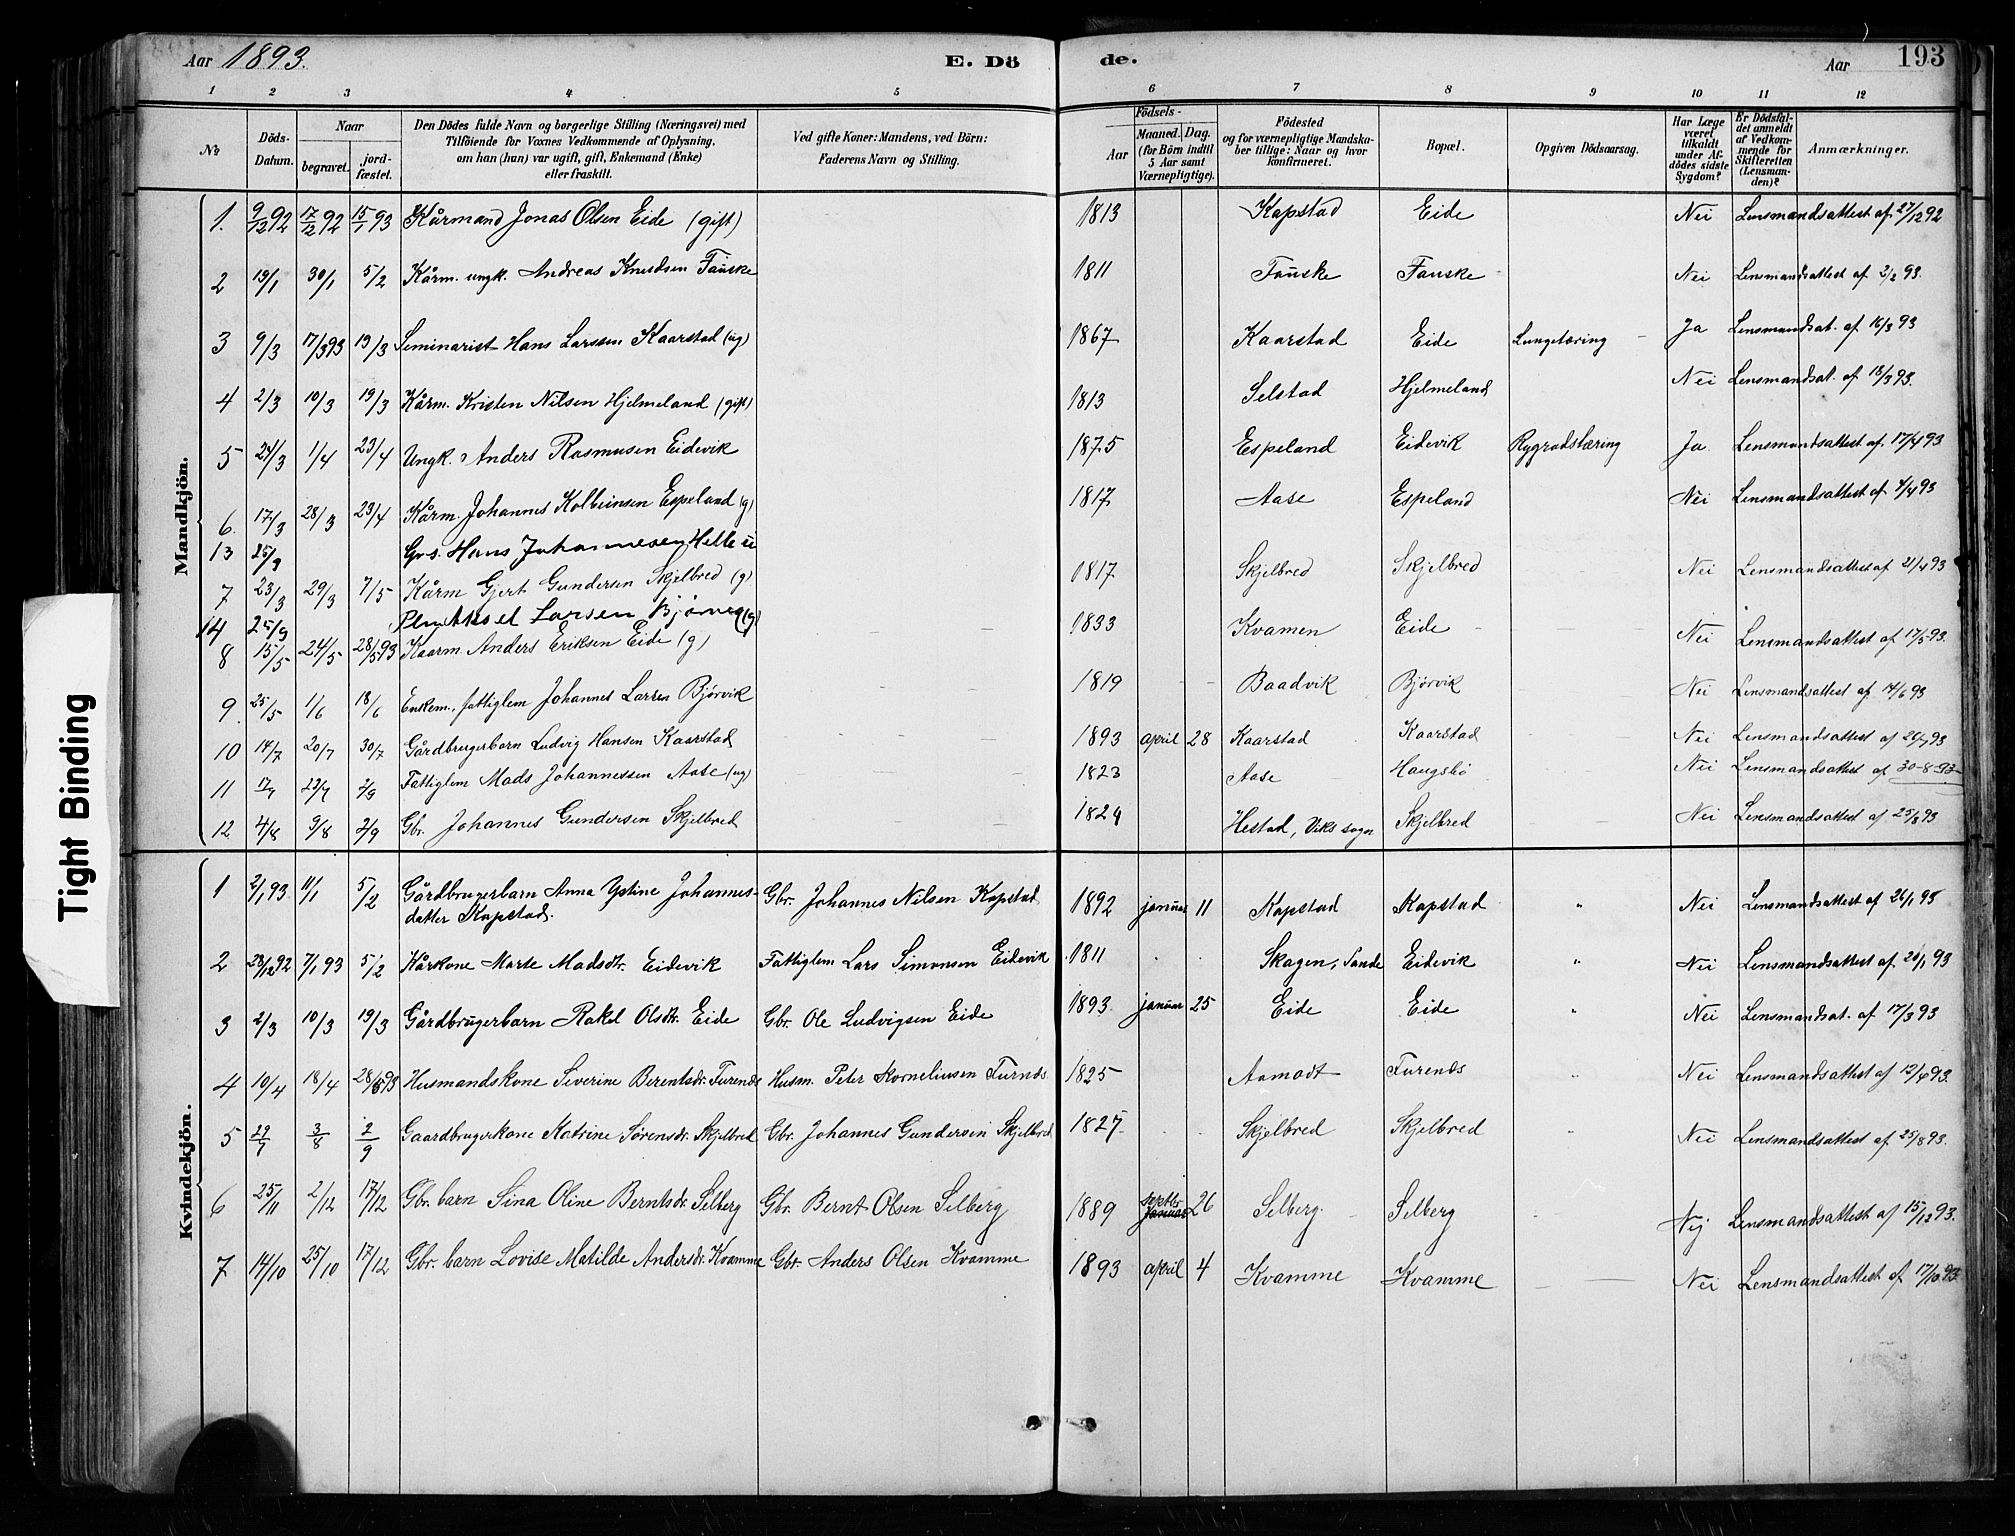 Aar 1893. E. Dö de. Aar 193
1 2 3 4 5 6 7 8 9 10 11 12
No Döds-Datum. Naar begravet. jordfæstet. Den Dödes fulde Navn og borgerlige Stilling (Næringsvei) med Tilföiende for Voxnes Vedkommende af Oplysning, om han (hun) var ugift, gift, Enkemand (Enke) eller fraskilt. Ved gifte Koner: Mandens, ved Börn: Faderens Navn og Stilling. Födsels- Aar Maaned. Dag. (for Börn indtil 5 Aar samt Værnepligtige). Födested og for værnepligtige Mandskaber tillige: Naar og hvor konfirmeret. Bopæl. Opgiven Dödsaarsag. Har Læge været tilkaldt under Afdödes sidste Sygdom? Er Dödsfaldet anmeldt af Vedkommende for Skifteretten (Lensmanden)? Anmærkninger.
Mandkjön.
1. 9/12 92 17/12 92 15/1 93 Kårmand Jonas Olsen Eide (gift) 1813 Kapstad Eide Nei Lensmandsattest af 27/12 92
2 19/1 30/1 5/2 Kårm. ungk. Andreas Knudsen Fauske 1811 Fauske Fauske Nei Lensmandsattest af 2/2 93.
3 9/3 17/3 93 19/3 Seminarist Hans Larssen Kaarstad (ug) 1867 Kaarstad Eide Lungetæring Ja Lensmandsat. af 16/3 93
4 2/3 10/3 19/3 Kårm. Kristen Nilsen Hjelmeland (gift) 1813 Selstad Hjelmeland Nei Lensmandsat. af 18/3 93.
5 24/3 1/4 23/4 Ungk. Anders Rasmusen Eidevik 1875 Espeland Eidevik Rygradstæring Ja Lensmandsattest af 17/4 93
6. 17/3 28/3 23/4 Kårm. Johannes Kolbeinsen Espeland (g) 1817 Aase Espeland Nei Lensmandsattest af 4/4 93
13 25/9 Grs. Hans Johannesen Helle
7 23/3 29/3 7/5 Kårm Gjert Gundersen Skjelbred (g) 1817 Skjelbred Skjelbred Nei Lensmandsattest af 21/4 93
14 25/9 Larsen (g)
8 15/5 24/5 28/5 93 Kaarm. Anders Eriksen Eide (g) 1833 Kvamen Eide Nei Lensmandsattest af 17/5 93.
9. 25/5 1/6 18/6 Enkem., fattiglem Johannes Larsen Bjørvik 1819 Baadvik Bjørvik Nei Lensmandsattest af 14/6 93
10 14/7 20/7 30/7 Gårdbrugerbarn Ludvig Hansen Kaarstad 1893 april 28 Kaarstad Kaarstad Nei Lensmandsattest af 20/7 93
11 17/7 23/7 2/9 Fattiglem Mads Johannessen Aase (ug) 1823 Aase Haugsbö Nei Lensmandsattest af 30-8-93
12 4/8 9/8 2/9 Gbr. Johannes Gundersen Skjelbred 1824 Hestad, Viks sogn Skjelbred Nei Lensmandsattest af 25/8 93
Kvindekjön.
1 2/1 93. 11/1 5/2 Gårdbrugerbarn Anna Ystine Johannes- Gbr. Johannes Nilsen Kapstad 1892 januar 11 Kapstad Kapstad " Nei Lensmandsattest af 26/1 93
datter Kapstad.
2 28/12 92 7/1 93 5/2 Kårkone Marte Madsdtr. Eidevik Fattiglem Lars Simonsen Eidevik 1811 Skagen, Sande Eidevik " Nei Lensmandsattest af 20/1 93
3 2/3 10/3 19/3 Gårdbrugerbarn Rakel Olsdtr. Eide Gbr. Ole Ludvigsen Eide 1893 januar 25 Eide Eide " Nei Lensmandsat. af 17/3 93
4 10/4 18/4 28/5 93 Husmandskone Severine Berentsdr. Furenes Husm. Peter Korneliusen Furnes 1825 Aamodt Furenes " Nei Lensmandsattest af 12/4 93.
5 29/7 3/8 2/9 Gaardbrugerkone Katrine Sørensdr. Skjelbred Gbr. Johannes Gundersen Skjelbred 1827 Skjelbred Skjelbred Nei Lensmandsattest af 25/8 93.
6 25/11 2/12 17/12 Gbr. barn Sina Oline Berntsdr. Selberg Gbr. Bernt Olsen Selberg 1889 septbr. Januar 26 Selberg Selberg Nej Lensmandsattest af 15/12 93.
7 14/10 25/10 17/12 Gbr. barn Lovise Matilde Andersdr. Kvamme Gbr. Anders Olsen Kvamme 1893 april 4 Kvamme Kvamme Nei Lensmandsattest af 17/10 93.
Tight Binding